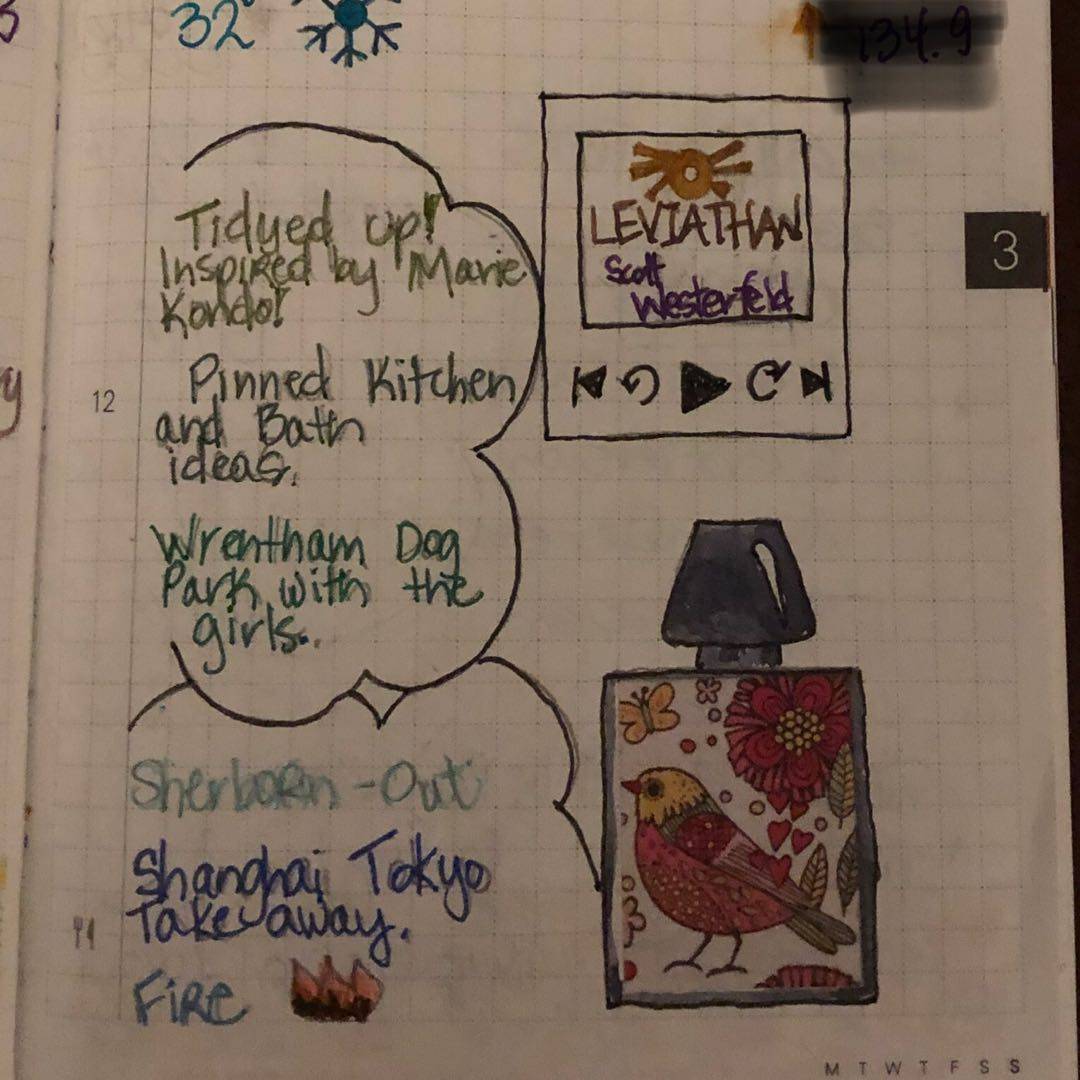 32°
134.9
Tidyed up!
Inspired by Marie
Kondo!
Pinned Kitchen
and Bath
ideas.
Wrentham Dog
Park with the
girls.
Sherborn - Out
Shanghai Tokyo
Take away.
Fire
LEVIATHAN
Scott
Westerfeld
3
12
M T W T F S S